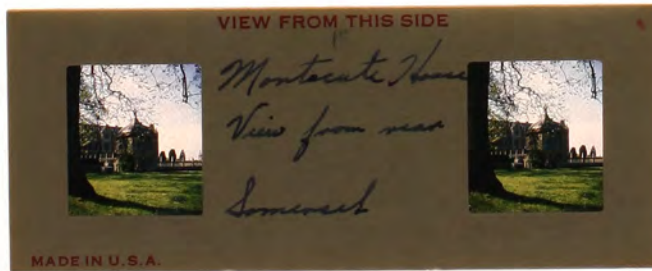 VIEW FROM THIS SIDE
Montecute House
View from rear
Somerset
MADE IN U.S.A.